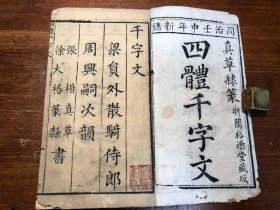 同治壬申年新鐫
真草隸篆
四體千字文
湘蘭裕德堂藏版
千字文
梁員外散騎侍郎
周興嗣次韻
張楷真草
徐大椿篆隸書